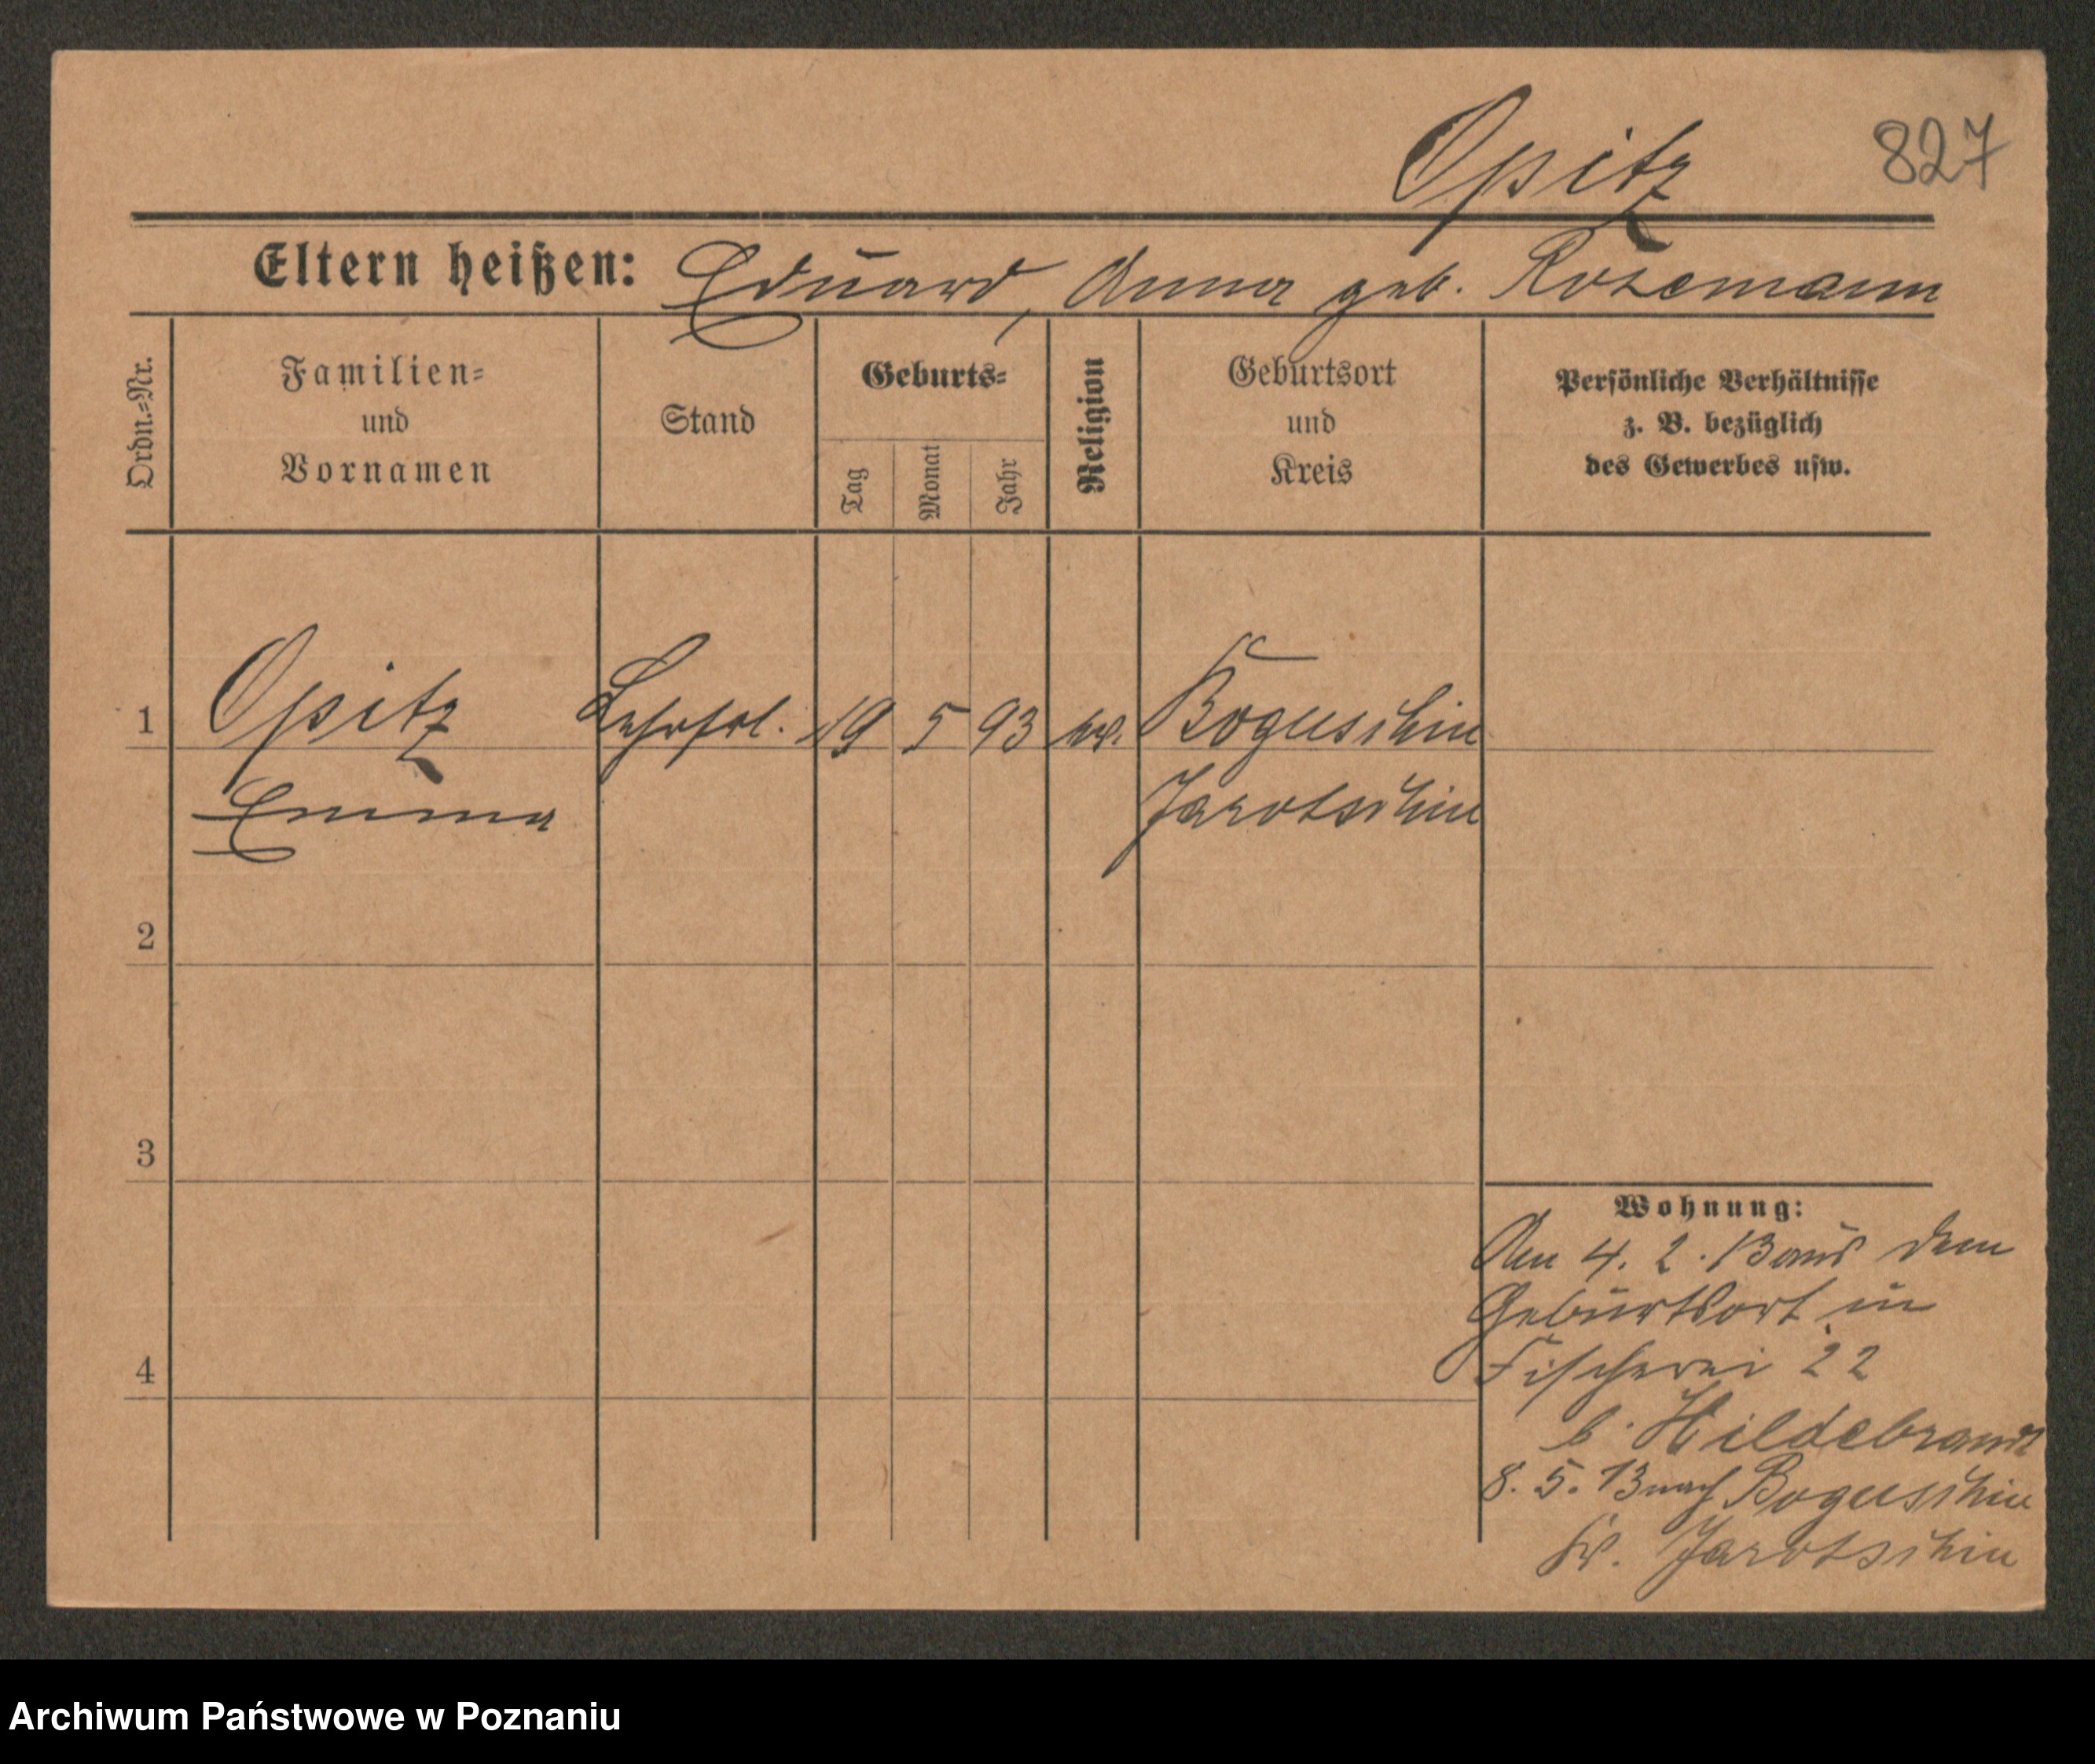 Opitz
827
Eltern heißen: Eduard, Anna geb. Rosemann
Ordn.-Nr.
Familien-
und
Vornamen
Stand
Geburts-
Tag
Monat
Jahr
Religion
Geburtsort
und
Kreis
Persönliche Verhältnisse
z. B. bezüglich
des Gewerbes usw.
1 Opitz Lehrfrl. 19 5 93 ev. Boguschin
Emma Jarotschin
2
3
4
Wohnung:
Am 4. 2. 13 aus dem
Geburtsort in
Fischerei 22
b. Hildebrandt
8. 5. 13 nach Boguschin
Kr. Jarotschin
Archiwum Państwowe w Poznaniu